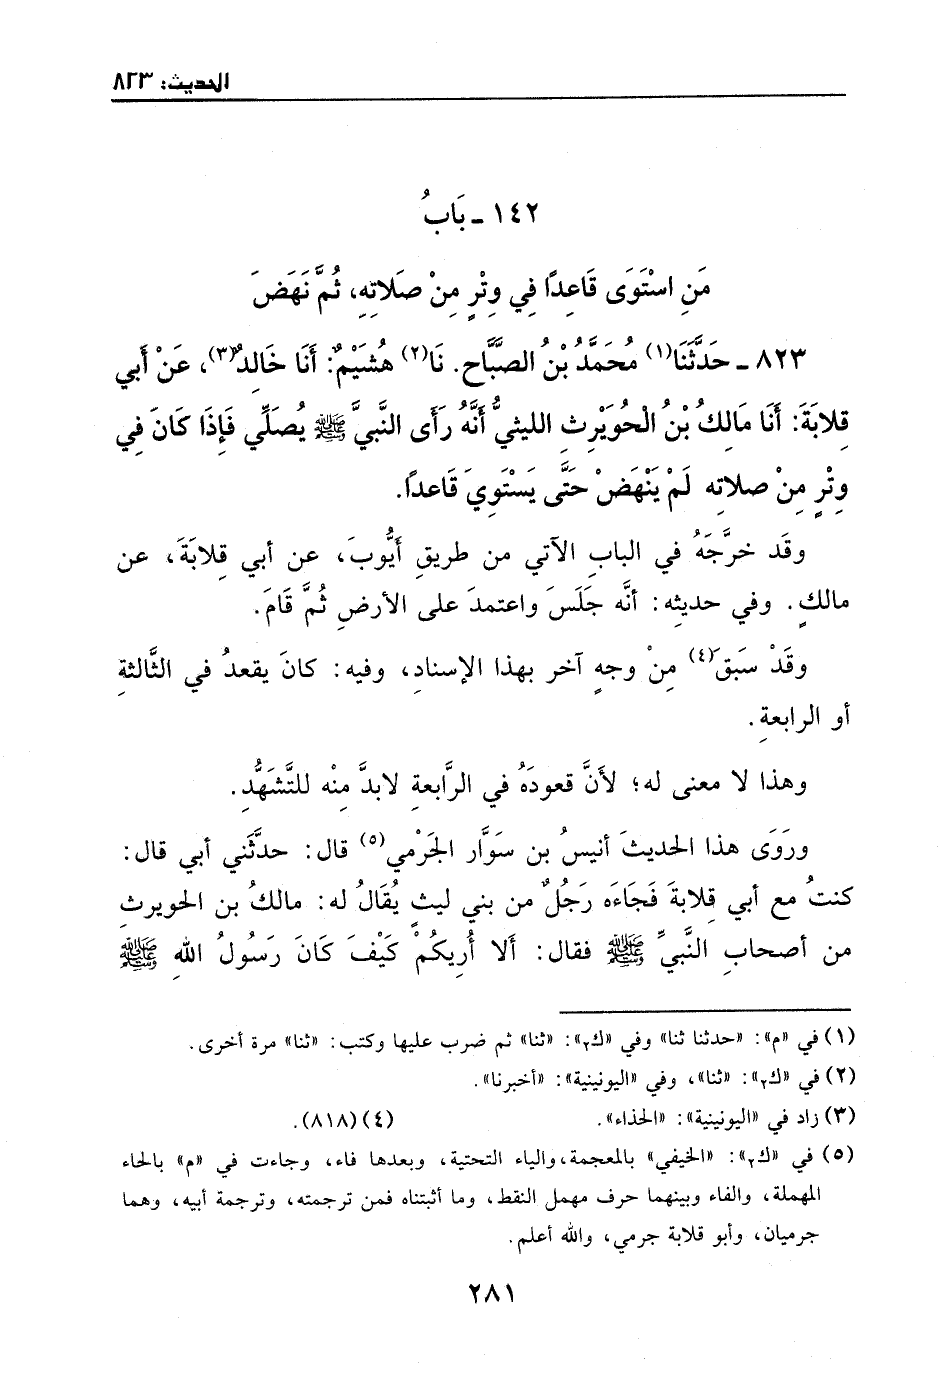 الحديث: ٨٢٣
١٤٢ ـ بَابُ
مَنِ اسْتَوَى قَاعِدًا فِي وِتْرٍ مِنْ صَلَاتِهِ، ثُمَّ نَهَضَ
٨٢٣ ـ حَدَّثَنَا(١) مُحَمَّدُ بْنُ الصَّبَّاحِ. نَا(٢) هُشَيْمٌ: أَنَا خَالِدٌ(٣)، عَنْ أَبي
قِلابَةَ: أَنَا مَالِكُ بْنُ الْحُوَيْرِثِ الليثيُّ أَنَّهُ رَأَى النَّبيَّ ﷺ يُصَلِّي فَإِذَا كَانَ فِي
وِتْرٍ مِنْ صلاتِهِ لَمْ يَنْهَضْ حَتَّى يَسْتَوِيَ قَاعدًا.
وقَد خرَّجَهُ في البابِ الآتي من طريقِ أَيُّوبَ، عن أبي قِلابَةَ، عن
مالكٍ. وفي حديثِه: أنَّه جَلَسَ واعتمدَ على الأرضِ ثُمَّ قَامَ.
وقَدْ سَبَقَ(٤) مِنْ وجهٍ آخر بهذا الإسنادِ، وفيه: كانَ يقعدُ في الثَّالثةِ
أو الرابعةِ.
وهذا لا معنى له؛ لأَنَّ قعودَهُ في الرَّابعةِ لابدَّ مِنْه للتَّشهُّدِ.
ورَوَى هذا الحديثَ أنيسُ بن سَوَّار الجَرْمي(٥) قال: حدَّثَني أبي قال:
كنتُ مع أبي قِلابةَ فَجَاءَه رَجُلٌ من بني ليثٍ يُقَالُ له: مالكُ بن الحويرثِ
من أصحابِ النَّبيِّ ﷺ فقال: أَلا أُرِيكُمْ كَيْفَ كَانَ رَسُولُ اللهِ ﷺ
(١) في «م»: «حدثنا ثنا» وفي «ك٢»: «ثنا» ثم ضرب عليها وكتب: «ثنا» مرة أخرى.
(٢) في «ك٢»: «ثنا»، وفي «اليونينية»: «أخبرنا».
(٣) زاد في «اليونينية»: «الحذاء». (٤) (٨١٨).
(٥) في «ك٢»: «الخيفي» بالمعجمة، والياء التحتية، وبعدها فاء، وجاءت في «م» بالحاء
المهملة، والفاء وبينهما حرف مهمل النقط، وما أثبتناه فمن ترجمته، وترجمة أبيه، وهما
جرميان، وأبو قلابة جرمي، والله أعلم.
٢٨١